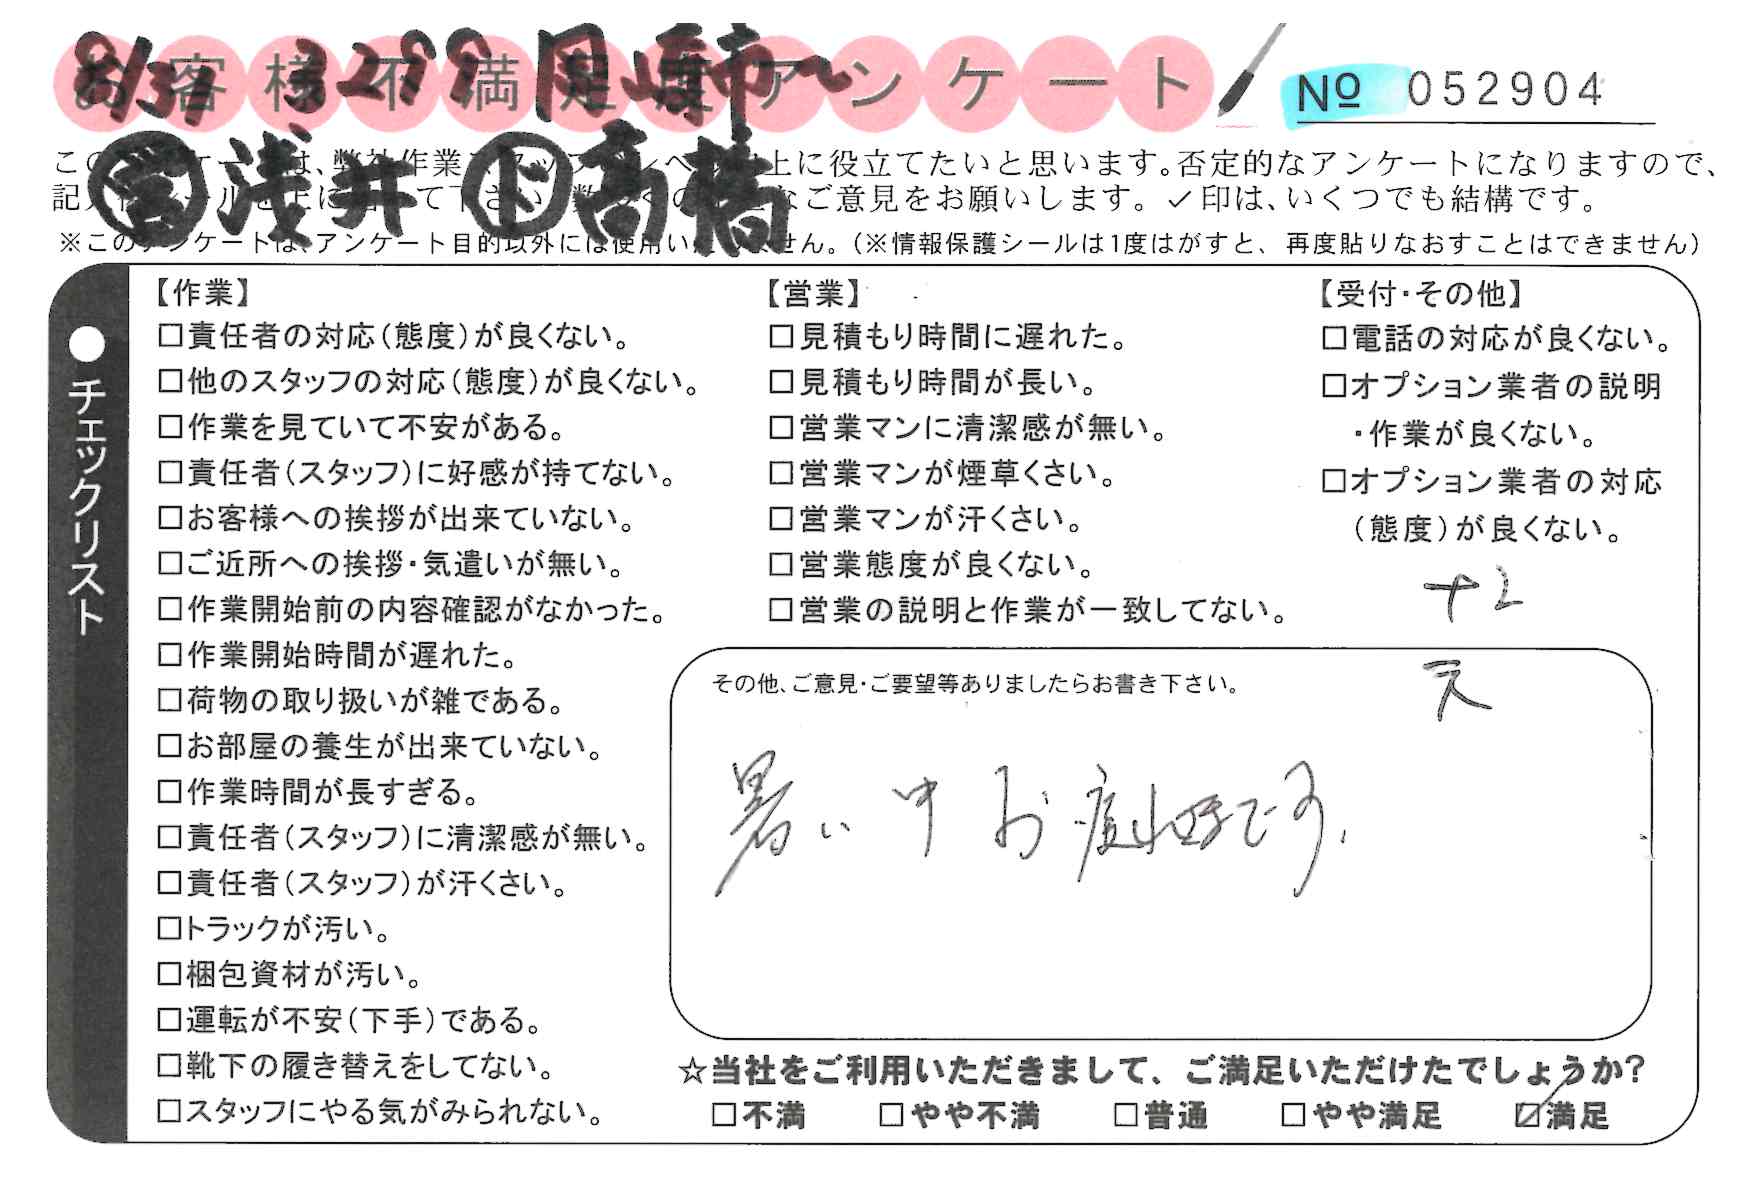 お客様不満足度アンケート
8/31 3299 岡山市〜
№ 052904
営 浅井 ド 髙橋
上に役立てたいと思います。否定的なアンケートになりますので、
ご意見をお願いします。✓印は、いくつでも結構です。
※このアンケートは、アンケート目的以外には使用いたしません。(※情報保護シールは1度はがすと、再度貼りなおすことはできません)
●チェックリスト
【作業】
□責任者の対応(態度)が良くない。
□他のスタッフの対応(態度)が良くない。
□作業を見ていて不安がある。
□責任者(スタッフ)に好感が持てない。
□お客様への挨拶が出来ていない。
□ご近所への挨拶・気遣いが無い。
□作業開始前の内容確認がなかった。
□作業開始時間が遅れた。
□荷物の取り扱いが雑である。
□お部屋の養生が出来ていない。
□作業時間が長すぎる。
□責任者(スタッフ)に清潔感が無い。
□責任者(スタッフ)が汗くさい。
□トラックが汚い。
□梱包資材が汚い。
□運転が不安(下手)である。
□靴下の履き替えをしてない。
□スタッフにやる気がみられない。
【営業】
□見積もり時間に遅れた。
□見積もり時間が長い。
□営業マンに清潔感が無い。
□営業マンが煙草くさい。
□営業マンが汗くさい。
□営業態度が良くない。
□営業の説明と作業が一致してない。
【受付・その他】
□電話の対応が良くない。
□オプション業者の説明
・作業が良くない。
□オプション業者の対応
(態度)が良くない。
+2
その他、ご意見・ご要望等ありましたらお書き下さい。
暑い中お疲れ様です。
☆当社をご利用いただきまして、ご満足いただけたでしょうか?
□不満 □やや不満 □普通 □やや満足 ☑満足